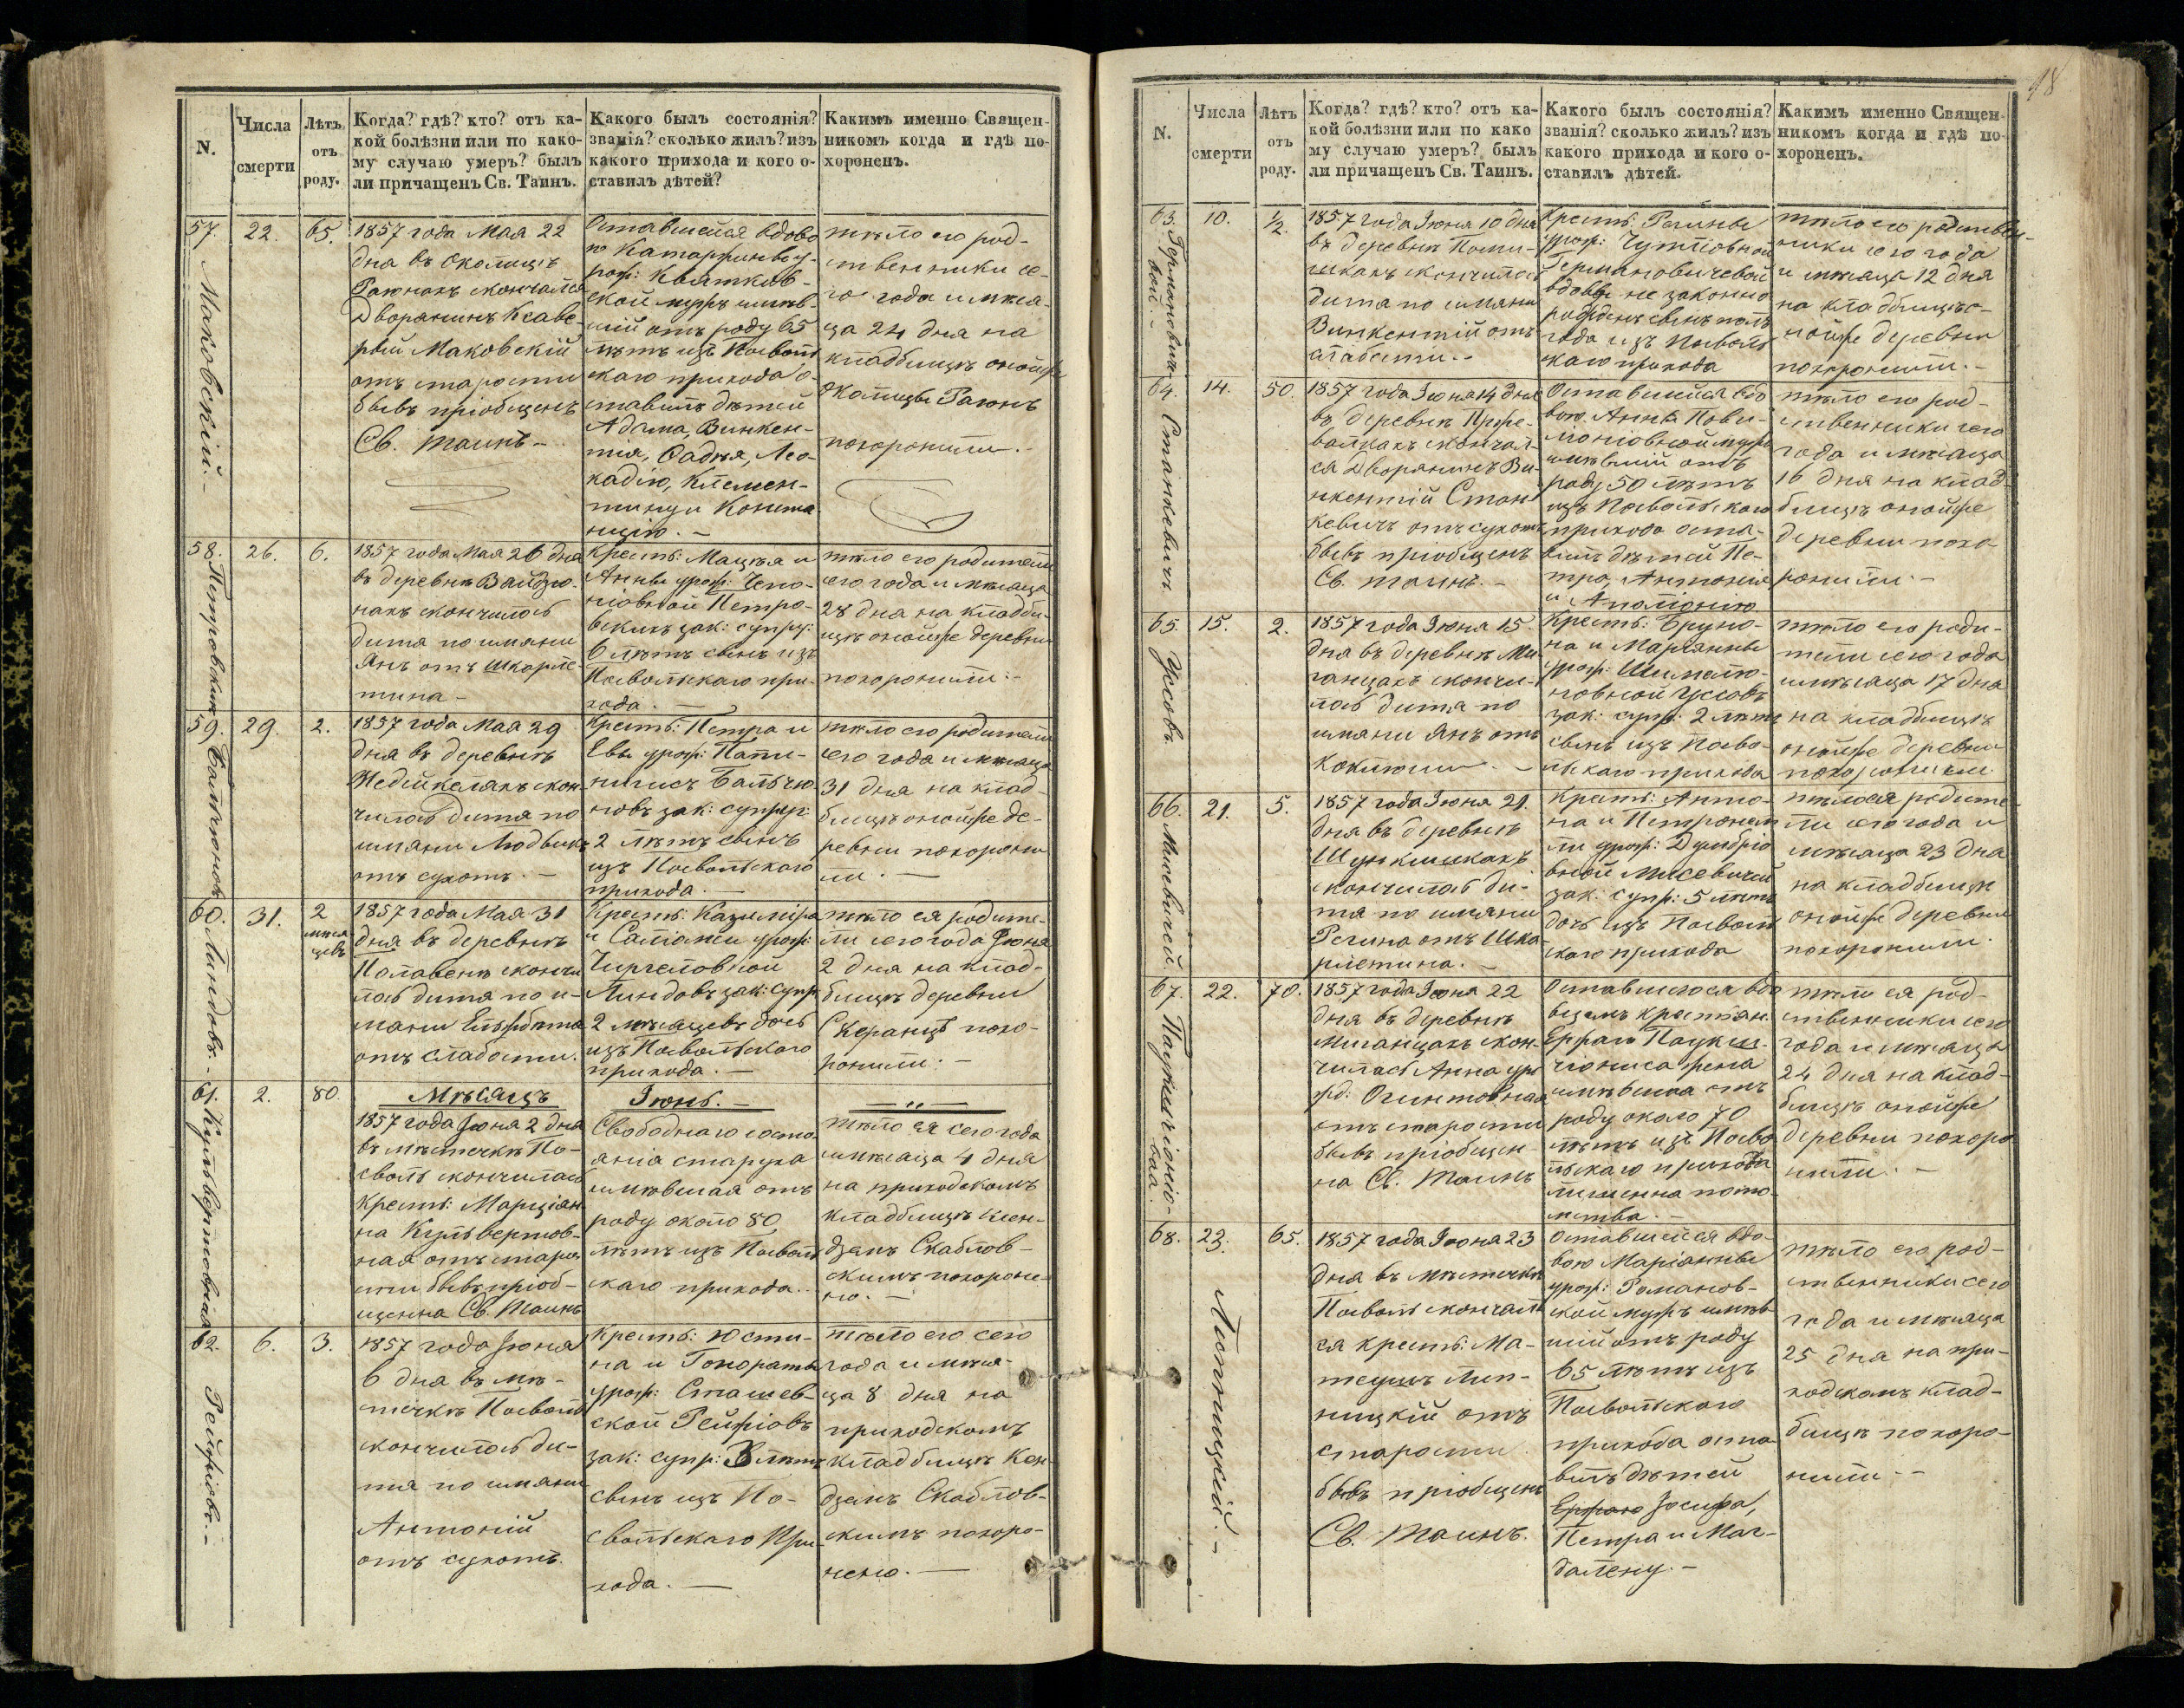 N.
Числа
смерти
Лѣтъ
отъ
роду.
Когда? гдѣ? кто? отъ ка-
кой болѣзни или по како-
му случаю умеръ? былъ
ли причащенъ Св. Таинъ.
Какого былъ состоянія?
званія? сколько жилъ? изъ
какого прихода и кого о-
ставилъ дѣтей?
Какимъ именно Священ-
никомъ когда и гдѣ по-
хороненъ.
57.
Маковскій. -
22.
65.
1857 года Мая 22
дня въ околицѣ
скончался
Дворянинъ Ксаве-
рый Маковскій
отъ старости
бывъ пріобщенъ
Св. таинъ -
Оставшейся вдово
ю Катаррины у-
рож: Квятков-
ской мужъ имѣв-
шій отъ роду 65
лѣтъ изъ Посволь
скаго прихода о-
ставилъ дѣтей
Адама, Винкен-
тія, Фадѣя, Лео-
кадію, Клемен-
тину и Конста
нцію. -
тѣло его род-
ственники се-
го года и мѣся-
ца 24 дня на
кладбищѣ онойже
Околицы
похоронили. -
58.
26.
6.
1857 года Мая 26 дня
въ деревнѣ
скончилось
дитя по имяни
Янъ отъ шкарле-
тина -
Крестъ: Мацѣя и
Анны урож:
Петро-
вскихъ зак: супруг:
6 лѣтъ сынъ изъ
Посвольскаго при-
хода. -
тѣло его родители
сего года и мѣсяца
28 дня на кладби-
щѣ онойже деревни
похоронили. -
59.
29.
2.
1857 года Мая 29
дня въ деревнѣ
скон-
чилось дитя по
имяни Людвикъ
отъ сухотъ. -
Крестъ: Петра и
Евы урож:
зак: супруг:
2 лѣтъ сынъ
изъ Посвольскаго
прихода. -
тѣло его родители
сего года и мѣсяца
31 дня на клад-
бищѣ онойже де-
ревни похорони
ли. -
60.
Линдовъ. -
31.
2
мѣся
цевъ
1857 года Мая 31
дня въ деревнѣ
скончи
лось дитя по и-
мяни Ельжбета
отъ слабости.
Крестъ: Казиміра
и Саломеи урож:
Линдовъ зак: супр
2 мѣсяцевъ дочь
изъ Посвольскаго
прихода. -
тѣло ея родите-
ли сего года Іюня
2 дня на клад-
бищѣ деревни
похо-
ронили. -
61.
Кульвертовная
2.
80.
Мѣсяцъ
Іюнь. -
- „ -
1857 года Іюня 2 дня
въ мѣстечкѣ По-
сволѣ скончилась
Крест: Марціян-
на Кульвертов-
ная отъ старо
сти бывъ пріоб-
щенна Св. Таинъ
Свободнаго состо
янія старуха
имѣвшая отъ
роду около 80
лѣтъ изъ Посволь
скаго прихода. -
тѣло ея сего года
и мѣсяца 4 дня
на приходскомъ
кладбищѣ Ксен-
дземъ Скаблов-
скимъ похороне-
но. -
62.
Рейжіовъ. -
6.
3.
1857 года Іюня
6 дня въ мѣ-
стечкѣ Посволѣ
скончилось ди-
тя по имяни
Антоній
отъ сухотъ.
Крестъ: Юсти-
на и Гонораты
урож: Сташев-
ской Рейжіовъ
зак: супр: 3 лѣтъ
сынъ изъ По-
свольскаго При
хода. -
тѣло его сего
года и мѣся-
ца 8 дня на
приходскомъ
кладбищѣ Ксен-
дземъ Скаблов-
скимъ похоро-
нено. -
18
N.
Числа
смерти
Лѣтъ
отъ
роду.
Когда? гдѣ? кто? отъ ка-
кой болѣзни или по како
му случаю умеръ? былъ
ли причащенъ Св. Таинъ.
Какого былъ состоянія?
званія? сколько жилъ? изъ
какого прихода и кого о-
ставилъ дѣтей.
Какимъ именно Священ
никомъ когда и гдѣ по-
хороненъ.
63.
10.
½.
1857 года Іюня 10 дня
въ деревнѣ
скончилось
дитя по имяни
Винкентій отъ
слабости. -
Крестъ: Регины
урож:
Германовичевой
вдовы не законно
рожденъ сынъ полъ
года изъ Посволь
скаго прихода
тѣло его родствен-
ники сего года
и мѣсяца 12 дня
на кладбищѣ о-
нойже деревни
похоронили. -
64.
Станкевичъ
14.
50.
1857 года Іюня 14 дня
въ деревнѣ
скончал-
ся Дворянинъ Ви-
нкентій Стан-
кевичъ отъ сухотъ
бывъ пріобщенъ
Св. таинъ. -
Оставшейся вдо
вою Анны
мужъ
имѣвшій отъ
роду 50 лѣтъ
изъ Посвольскаго
прихода оста-
вилъ дѣтей Пе-
тра, Антонія
и Аполіонію
тѣло его род-
ственники сего
года и мѣсяца
16 дня на клад-
бищѣ онойже
деревни похо-
ронили. -
65.
Усовъ
15.
2.
1857 года Іюня 15
дня въ деревнѣ Ми-
ганцахъ скончи-
лось дитя по
имяни Янъ отъ
коклюши. -
Крестъ: Бруно-
на и Маріянны
урож:
Уссовъ
зак: супр: 2 лѣтъ
сынъ изъ Посво-
льскаго прихода
тѣло его роди-
тели сего года
и мѣсяца 17 дня
на кладбищѣ
онойже деревни
похоронили.
66.
Мисевичей.
21.
5.
1857 года Іюня 21.
дня въ деревнѣ
скончилось ди-
тя по имяни
Регина отъ Шка-
рлетина. -
Крестъ: Анто-
на и Петронел
ли урож:
Мисевичей
зак: супр: 5 лѣтъ
дочь изъ Посволь
скаго прихода
тѣло ея родите-
ли сего года и
мѣсяца 23 дня
на кладбищѣ
онойже деревни
похоронили.
67.
22.
70.
1857 года Іюня 22
дня въ деревнѣ
Миганцахъ скон-
чилась Анна уро
жд: Огинтовная
отъ старости
бывъ пріобщен-
на Св. Таинъ
Оставшегося вдо
вцемъ крестьян.
жена
имѣвшая отъ
роду около 70
лѣтъ изъ Посво
льскаго прихода
лишенна пото-
мства. -
тѣло ея род-
ственники сего
года и мѣсяца
24 дня на клад-
бищѣ онойже
деревни похоро
нили. -
68.
Липницкій. -
23.
65.
1857 года Іюня 23
дня въ мѣстечкѣ
Посволѣ скончал
ся крестъ: Ма-
теушъ Лип-
ницкій отъ
старости
бывъ пріобщенъ
Св. Таинъ.
Оставшейся вдо-
вою Маріянны
урож: Романов-
ской мужъ имѣв
шій отъ роду
65 лѣтъ изъ
Посвольскаго
прихода оста-
вилъ дѣтей
Іосифа,
Петра и Маг-
далену. -
тѣло его род-
ственники сего
года и мѣсяца
25 дня на при-
ходскомъ клад-
бищѣ похоро-
нили. -